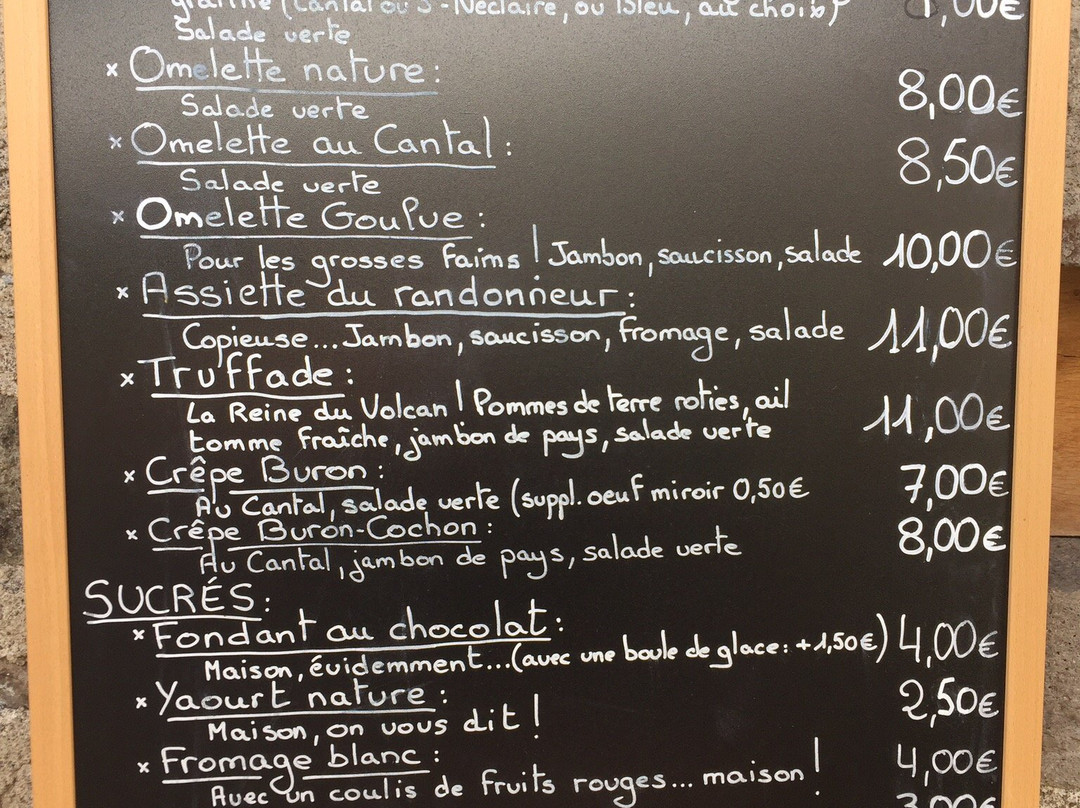 (Cantal ou S-Nectaire, ou Bleu, au choix)
Salade verte
x Omelette nature : 8,00€
Salade verte
x Omelette au Cantal : 8,50€
Salade verte
x Omelette Goulue :
Pour les grosses faims ! Jambon, saucisson, salade 10,00€
x Assiette du randonneur :
Copieuse... Jambon, saucisson, fromage, salade 11,00€
x Truffade :
La Reine du Volcan ! Pommes de terre roties, ail 11,00€
tomme fraîche, jambon de pays, salade verte
x Crêpe Buron : 7,00€
Au Cantal, salade verte (suppl. oeuf miroir 0,50€
x Crêpe Buron-Cochon : 8,00€
Au Cantal, jambon de pays, salade verte
SUCRÉS :
x Fondant au chocolat : 4,00€
Maison, évidemment...(avec une boule de glace : +1,50€)
x Yaourt nature : 2,50€
Maison, on vous dit !
x Fromage blanc : 4,00€
Avec un coulis de fruits rouges... maison !
3,00€